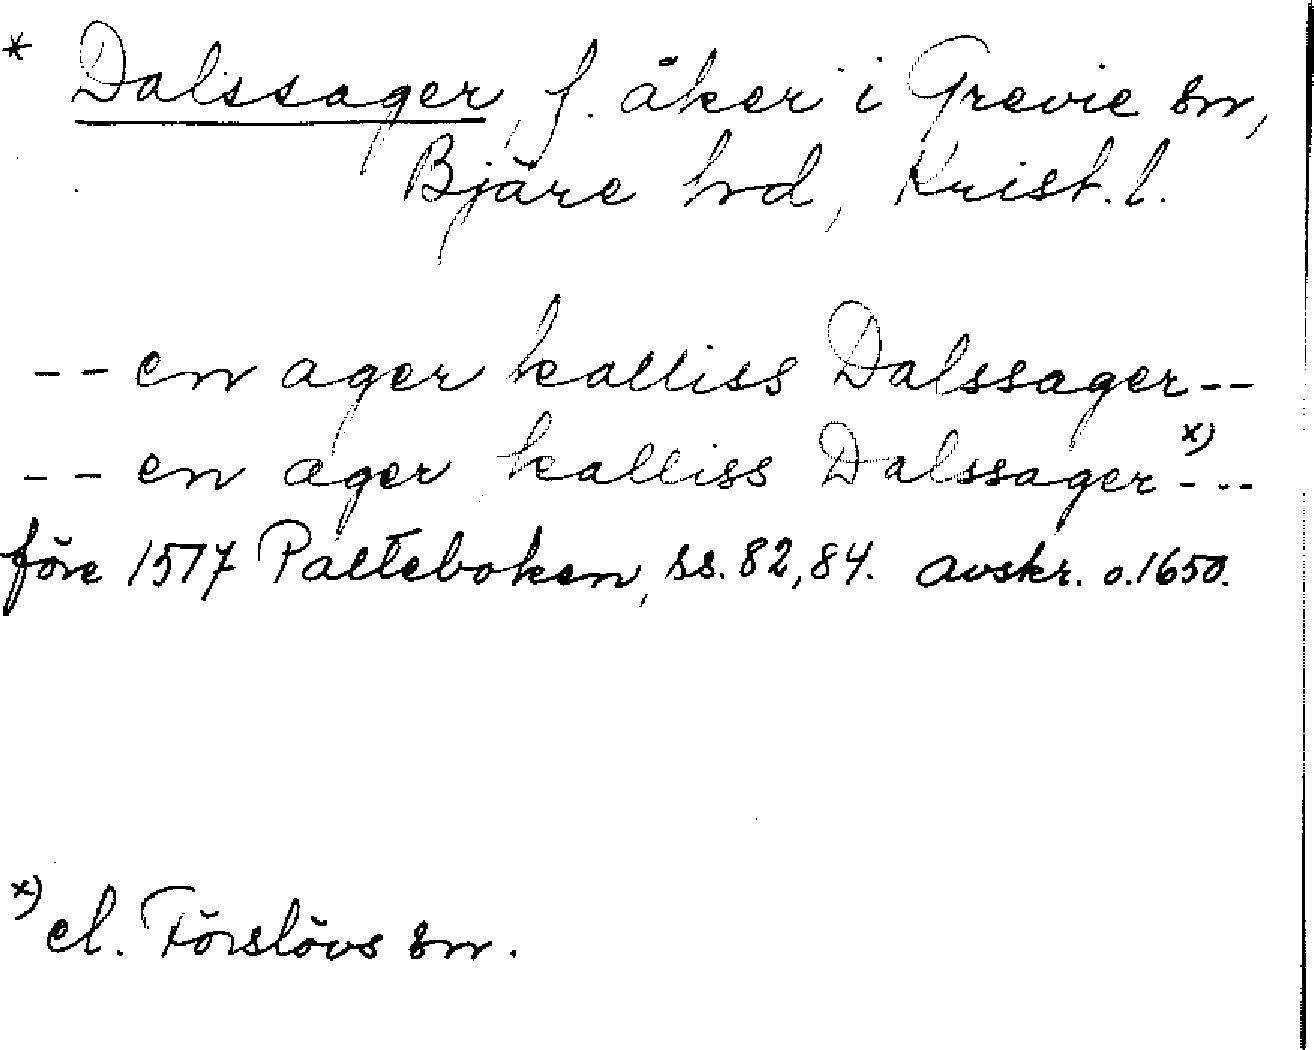 * Dalssager, f. åker i Grevie sn,
Bjäre hd, Krist. l.
-- en ager kalliss Dalssager --
-- en ager kalliss Dalssager x) ---
före 1517 Palteboken, ss. 82, 84. avskr. o. 1650.
x) el. Förslövs sn.